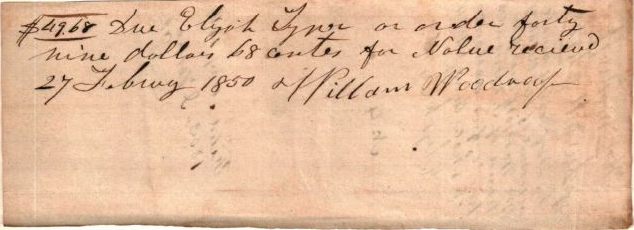 $49.68 Due Elijah Tyner or order forty
nine dollars 68 centes for Value recieved
27 Februy 1850 William Woodroof